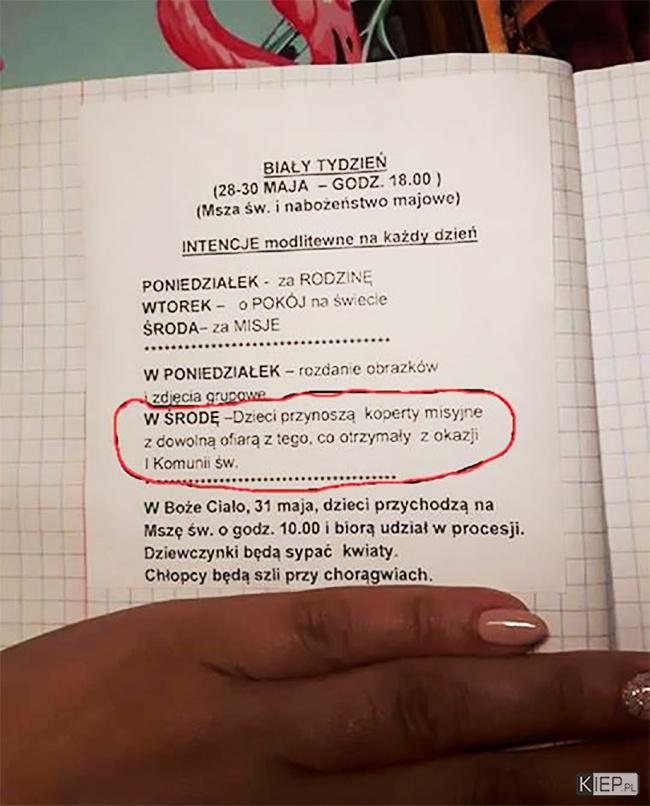 BIAŁY TYDZIEŃ
(28-30 MAJA – GODZ. 18.00 )
(Msza św. i nabożeństwo majowe)
INTENCJE modlitewne na każdy dzień
PONIEDZIAŁEK - za RODZINĘ
WTOREK – o POKÓJ na świecie
ŚRODA– za MISJE
W PONIEDZIAŁEK – rozdanie obrazków
i zdjęcia grupowe
W ŚRODĘ –Dzieci przynoszą koperty misyjne
z dowolną ofiarą z tego, co otrzymały z okazji
I Komunii św.
W Boże Ciało, 31 maja, dzieci przychodzą na
Mszę św. o godz. 10.00 i biorą udział w procesji.
Dziewczynki będą sypać kwiaty.
Chłopcy będą szli przy chorągwiach.
KIEP.PL